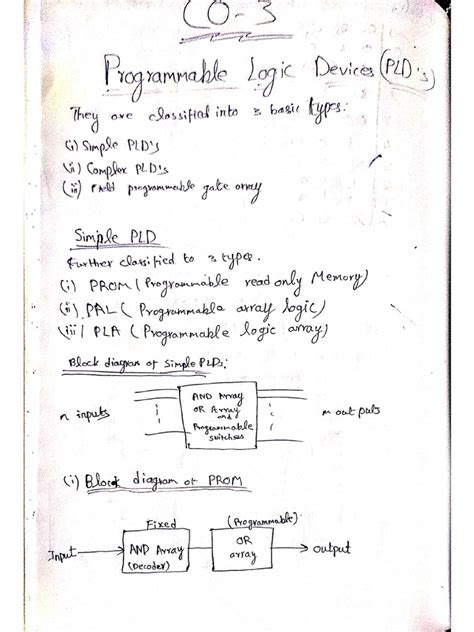 CO-3
Programmable Logic Devices (PLD's)
They are classified into 3 basic types:
(i) Simple PLD's
(ii) Complex PLD's
(iii) Field programmable gate array
Simple PLD
Further classified to 3 types.
(i) PROM (Programmable read only Memory)
(ii) PAL (Programmable array logic)
(iii) PLA (Programmable logic array)
Block diagram of Simple PLDs:
n inputs
AND Array
OR Array
and
Programmable
switches
m out puts
(i) Block diagram of PROM
Fixed (Programmable)
Input AND Array OR output
(Decoder) array